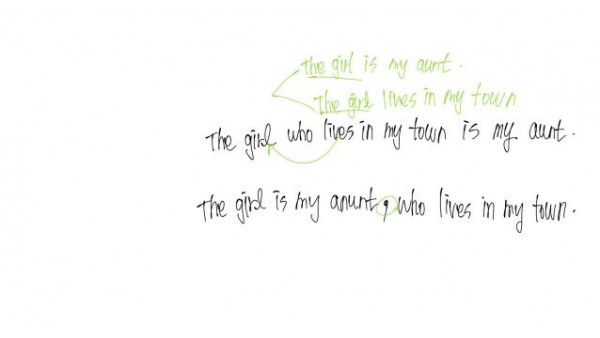 The girl is my aunt.
The girl lives in my town
The girl who lives in my town is my aunt.
The girl is my anunt, who lives in my town.